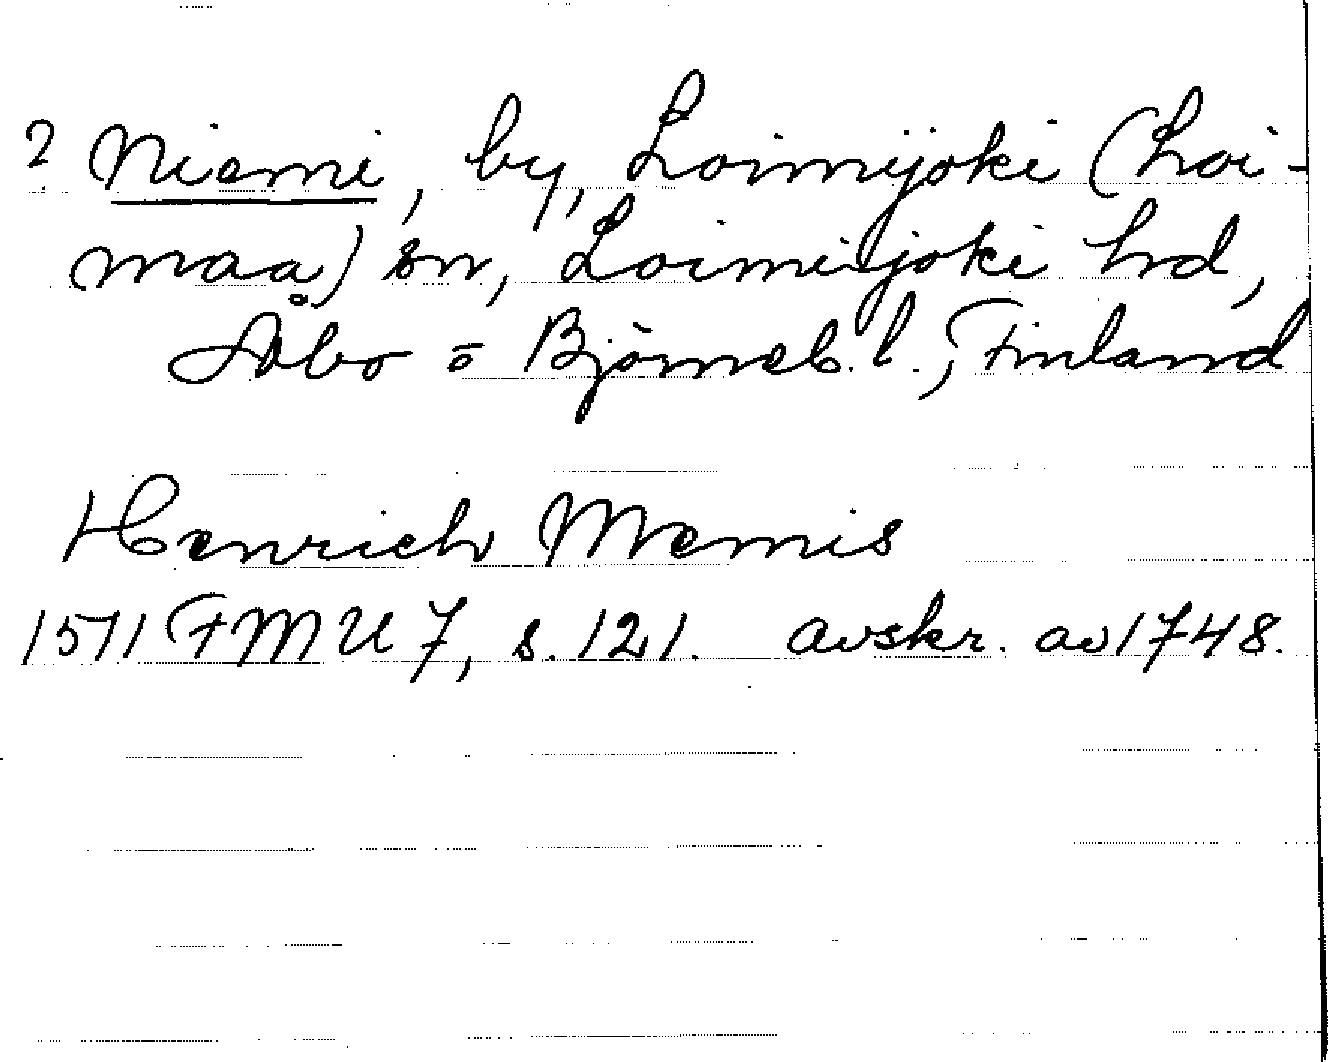 ? Niemi, by, Loimijoki (Loi-
maa) sn, Loimijoki hd,
Åbo o Björneb. l., Finland
Henrich Memis
1571 FMU 7, s. 121. avskr. av 1748.